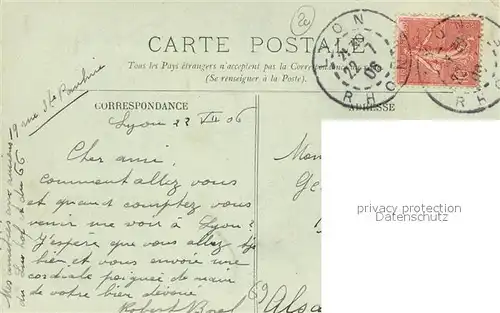 20
CARTE POSTALE
Tous les Pays étrangers n'acceptent pas la Corres
(Se renseigner à la Poste).
LYON
22-7
06
RHONE
CORRESPONDANCE
ADRESSE
Lyon 22 VII 06
Cher ami,
comment allez vous
et quand comptez vous
venir me voir à Lyon?
J'espère que vous allez tjs
bien et vous envoie une
cordiale poignée de main
de votre bien dévoué
Robert
19 rue Ste Pauline
Mes amitiés aux anciens
du et du 66
Mon
Ge
Alsa
privacy protection
Datenschutz